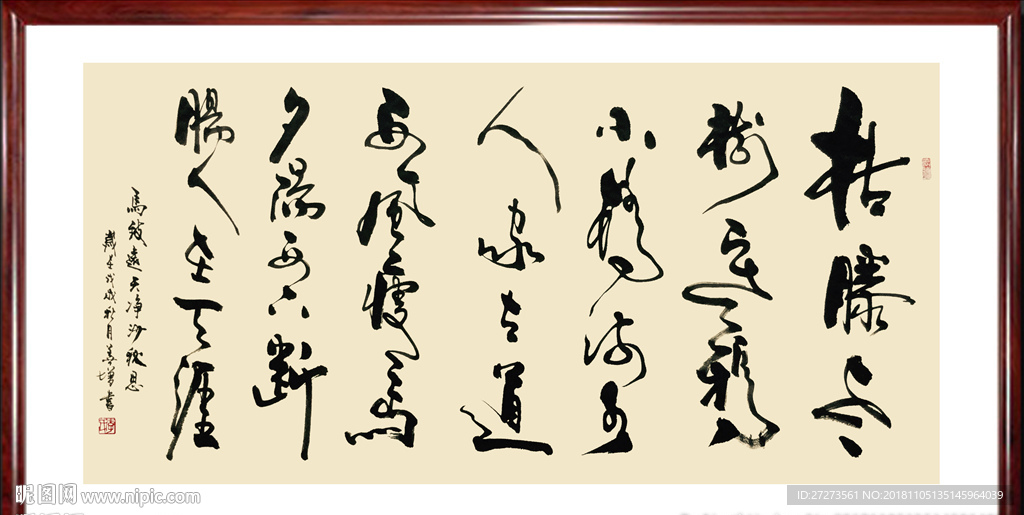 枯藤老
樹昏鴉
小橋流水
人家古道
西風瘦馬
夕陽西下斷
腸人在天涯
馬致遠天净沙秋思
歲在戊戌秋月善增書
昵图网 www.nipic.com
ID:27273561 NO:20181105135145964039